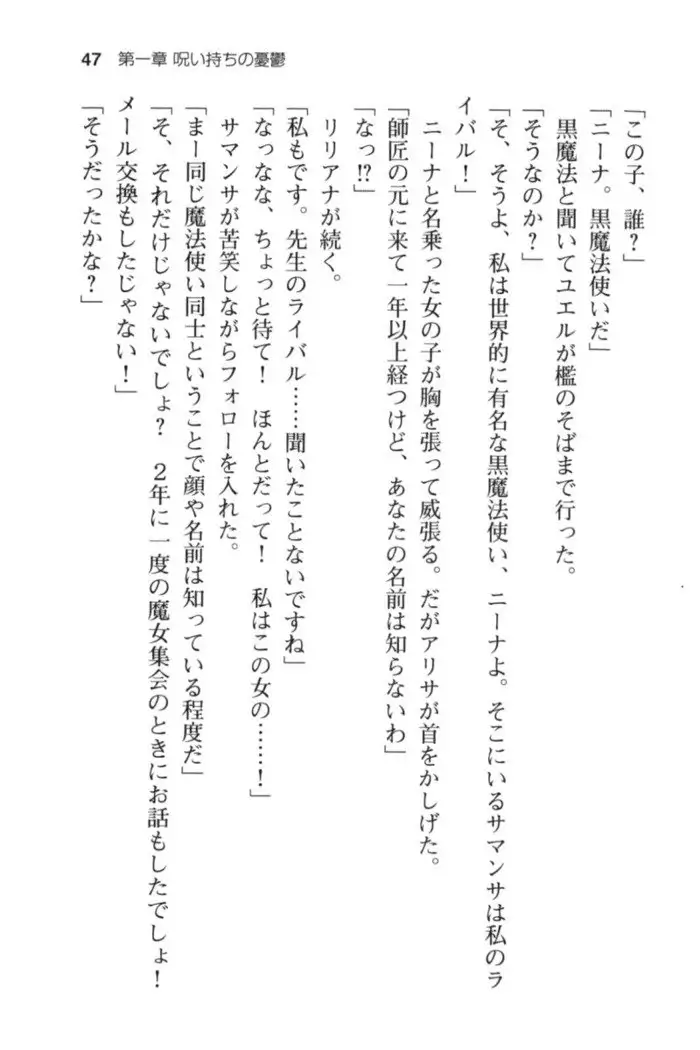 47　第一章 呪い持ちの憂鬱
「この子、誰？」
「ニーナ。黒魔法使いだ」
　黒魔法と聞いてユエルが檻のそばまで行った。
「そうなのか？」
「そ、そうよ、私は世界的に有名な黒魔法使い、ニーナよ。そこにいるサマンサは私のラ
イバル！」
　ニーナと名乗った女の子が胸を張って威張る。だがアリサが首をかしげた。
「師匠の元に来て一年以上経つけど、あなたの名前は知らないわ」
「なっ!?」
　リリアナが続く。
「私もです。先生のライバル……聞いたことないですね」
「なっなな、ちょっと待て！　ほんとだって！　私はこの女の……！」
　サマンサが苦笑しながらフォローを入れた。
「まー同じ魔法使い同士ということで顔や名前は知っている程度だ」
「そ、それだけじゃないでしょ？　２年に一度の魔女集会のときにお話もしたでしょ！
メール交換もしたじゃない！」
「そうだったかな？」